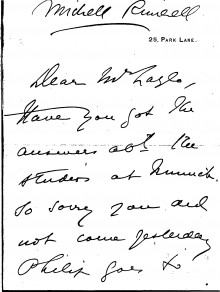 25, PARK LANE.
Dear Mr
Have you got the
answers abt. the
studios at Munich.
So sorry you did
not come yesterday
Philip goes to